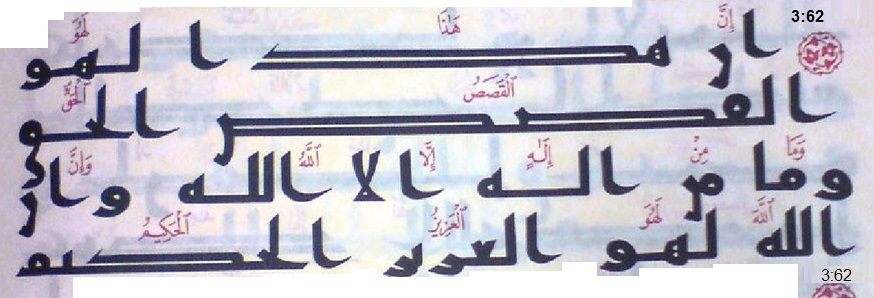 3:62
إِنَّ هَٰذَا لَهُوَ
ان هذا لهو
ٱلْقَصَصُ ٱلْحَقُّ
القصص الحق
وَمَا مِنْ إِلَٰهٍ إِلَّا ٱللَّهُ وَإِنَّ
وما من اله الا الله وان
ٱللَّهَ لَهُوَ ٱلْعَزِيزُ ٱلْحَكِيمُ
الله لهو العزيز الحكيم
3:62